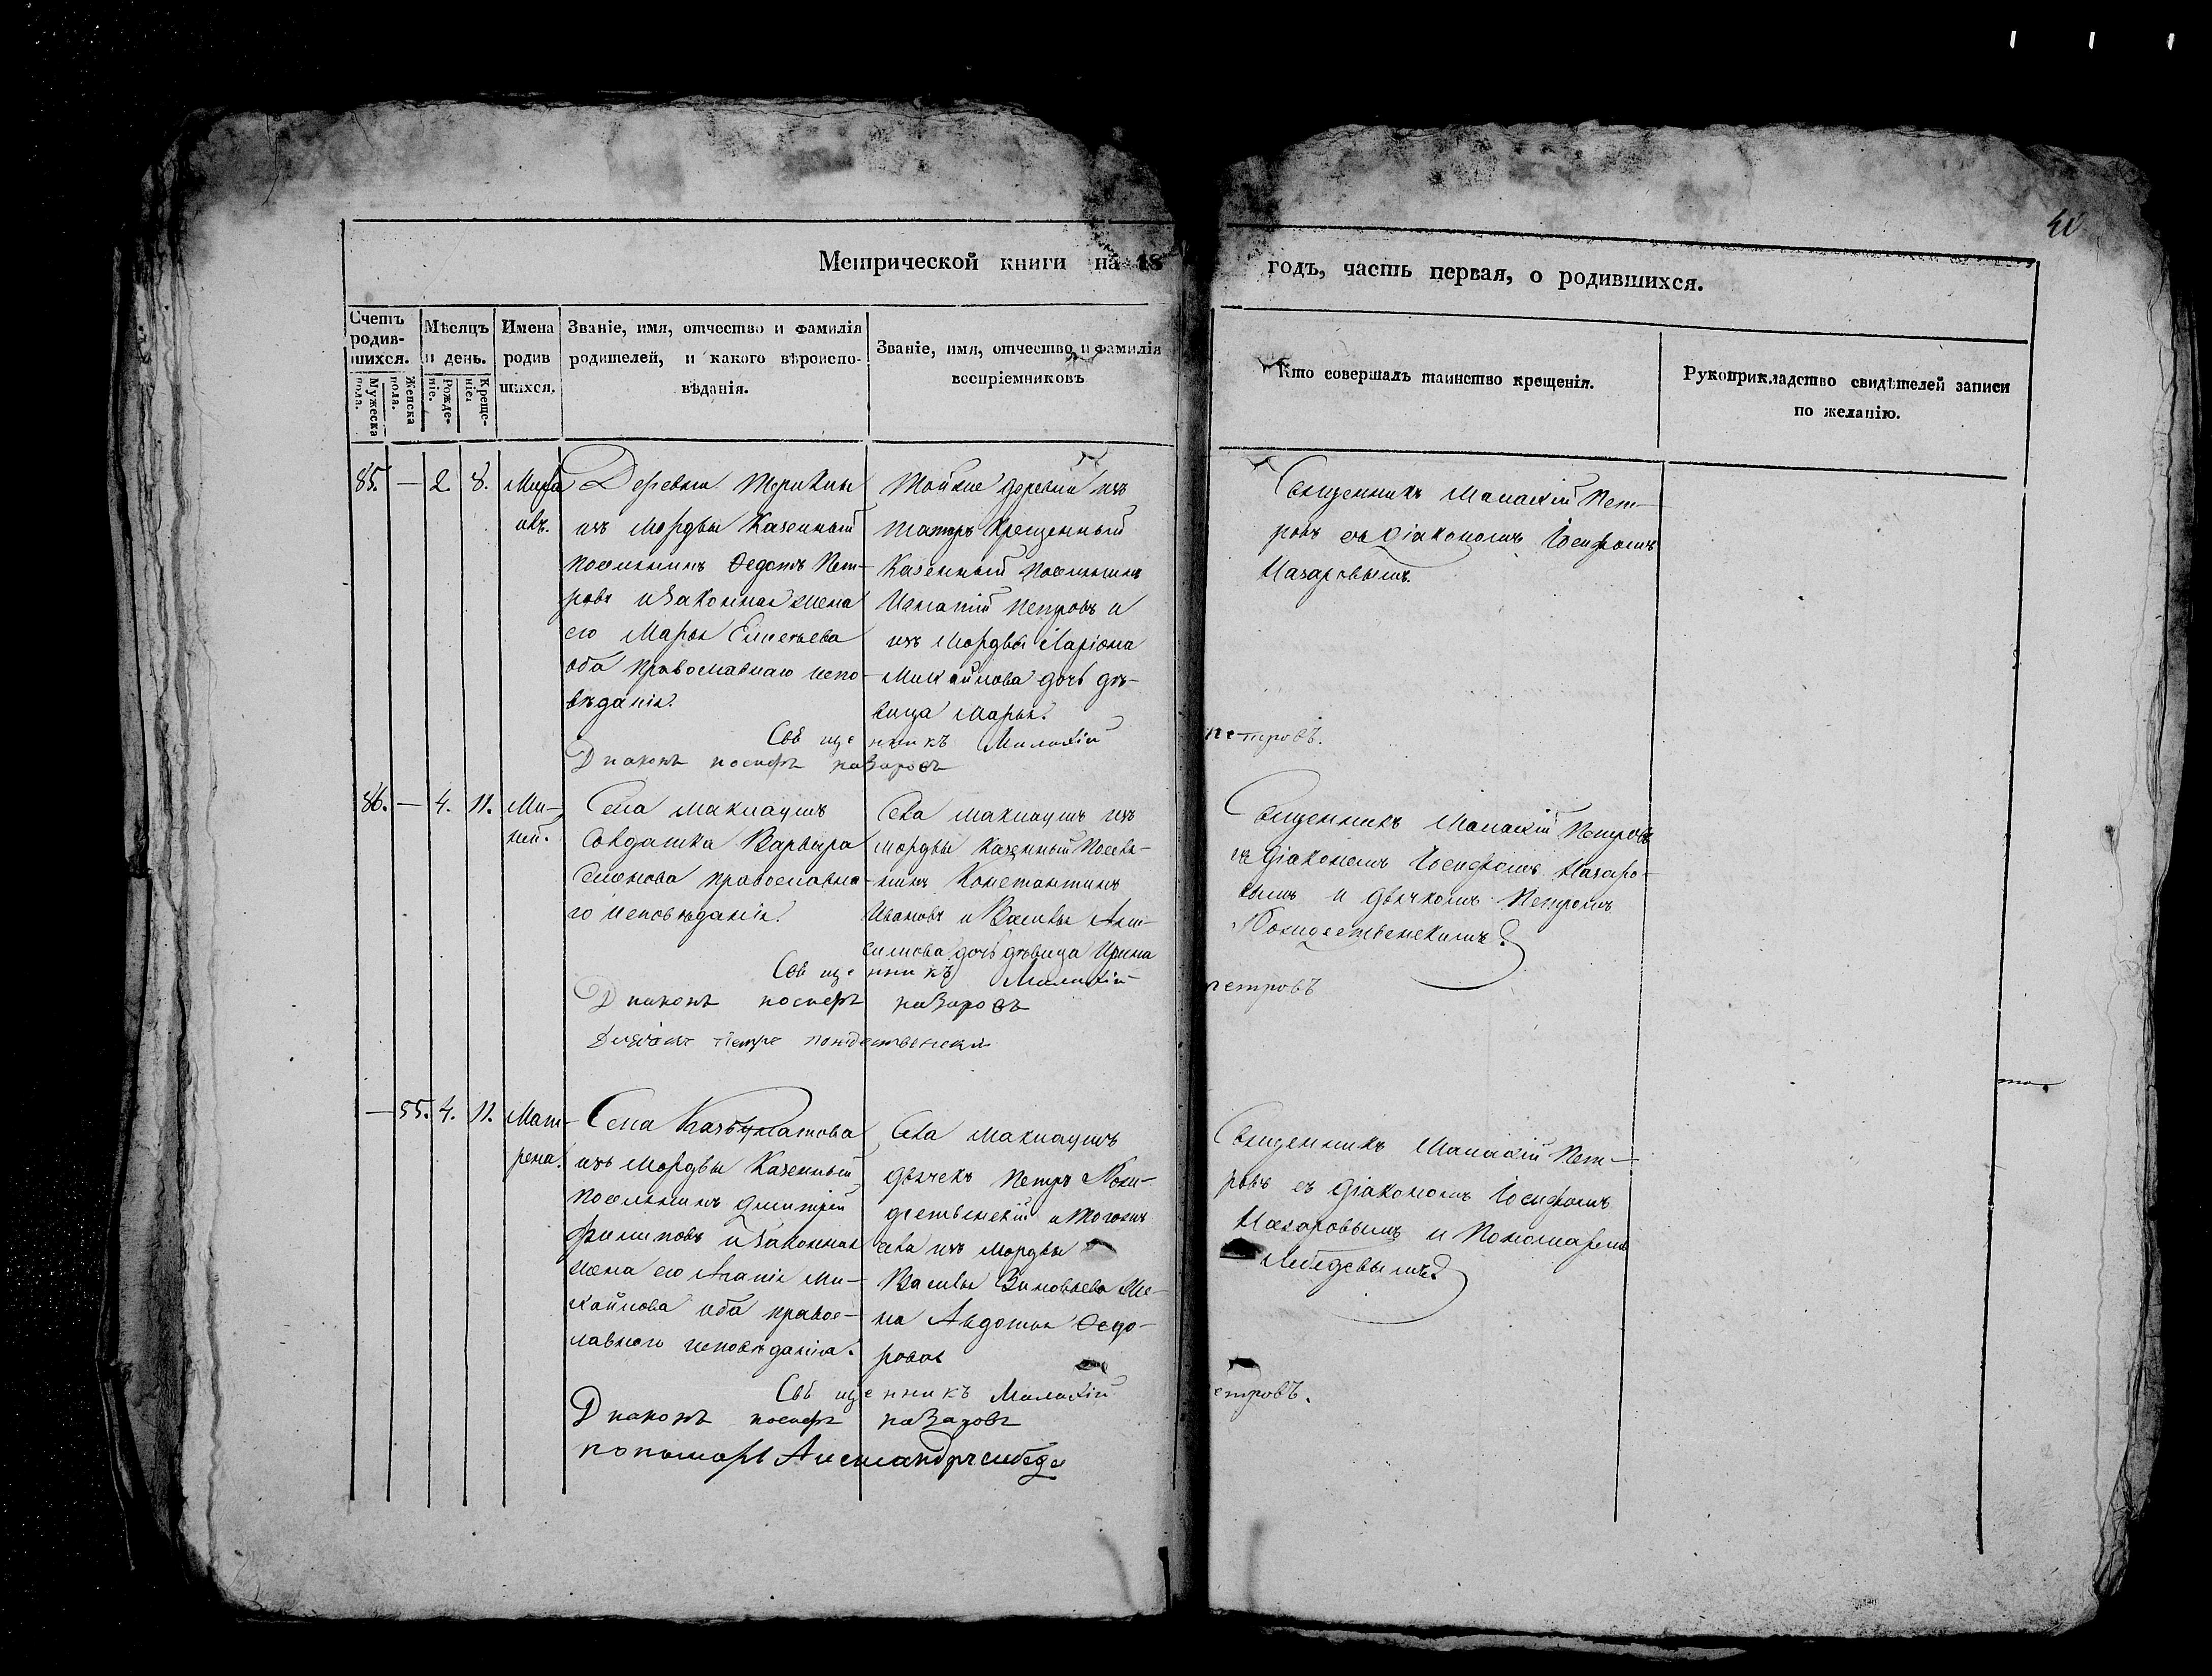 40
Метрической книги на 18
годъ, часть первая, о родившихся.
Счетъ родив-шихся.
Мужеска пола.
Женска пола.
Мѣсяцъ и день.
Рожде-ніе.
Креще-ніе.
Имена родив шихся,
Званіе, имя, отчество и фамилія
родителей, и какого вѣроиспо-
вѣданія.
Званіе, имя, отчество и фамилія
воспріемниковъ
Кто совершалъ таинство крещенія.
Рукоприкладство свидѣтелей записи
по желанію.
85. — 2. 8.
Деревни
изъ Мордвы Казенный
поселянинъ Ѳедотъ Пет-
ровъ и законная жена
его Марья
оба православнаго испо-
вѣданія.
Тойже деревни изъ
татаръ крещенный
Казенный поселянинъ
Игнатій Петровъ и
изъ Мордвы Ларіона
Михайлова дочь дѣ-
вица Марья.
Священникъ Малахій Пет-
ровъ съ діакономъ Іосифомъ
Назаровымъ.
Свещенникъ Малахій
петровъ.
Диаконъ иосифъ назаровъ
86. — 4. 11.
Ми-
ній.
Села
Солдатка Варвара
Семенова православна-
го исповѣданія.
Села изъ
мордвы казенный поселя-
нинъ Константинъ
Ивановъ и Василья
дочь дѣвица Ирина
Священникъ Малахій Петровъ
съ діакономъ Іосифомъ Назаро-
вымъ и дьячкомъ Петромъ
Рождественскимъ.
Свещенникъ Малахій
петровъ
Диаконъ иосифъ назаровъ
— 55. 4. 11.
Мат-
рена.
Села
изъ Мордвы Казенный
поселянинъ Димитрій
Филиповъ и законная
жена его Агапія Ми-
хайлова оба правос-
лавнаго исповѣданія.
Села
дьячекъ Петръ Рож-
дественскій и тогожъ
села изъ мордвы
Василья Зиновьева же-
на Авдотья Ѳедо-
рова
Священникъ Малахій Пет-
ровъ съ діакономъ Іосифомъ
Назаровымъ и Пономаремъ
Лебедевымъ.
Свещенникъ Малахій
етровъ.
Диаконъ иосифъ назаровъ
пономарь Александръ лебеде